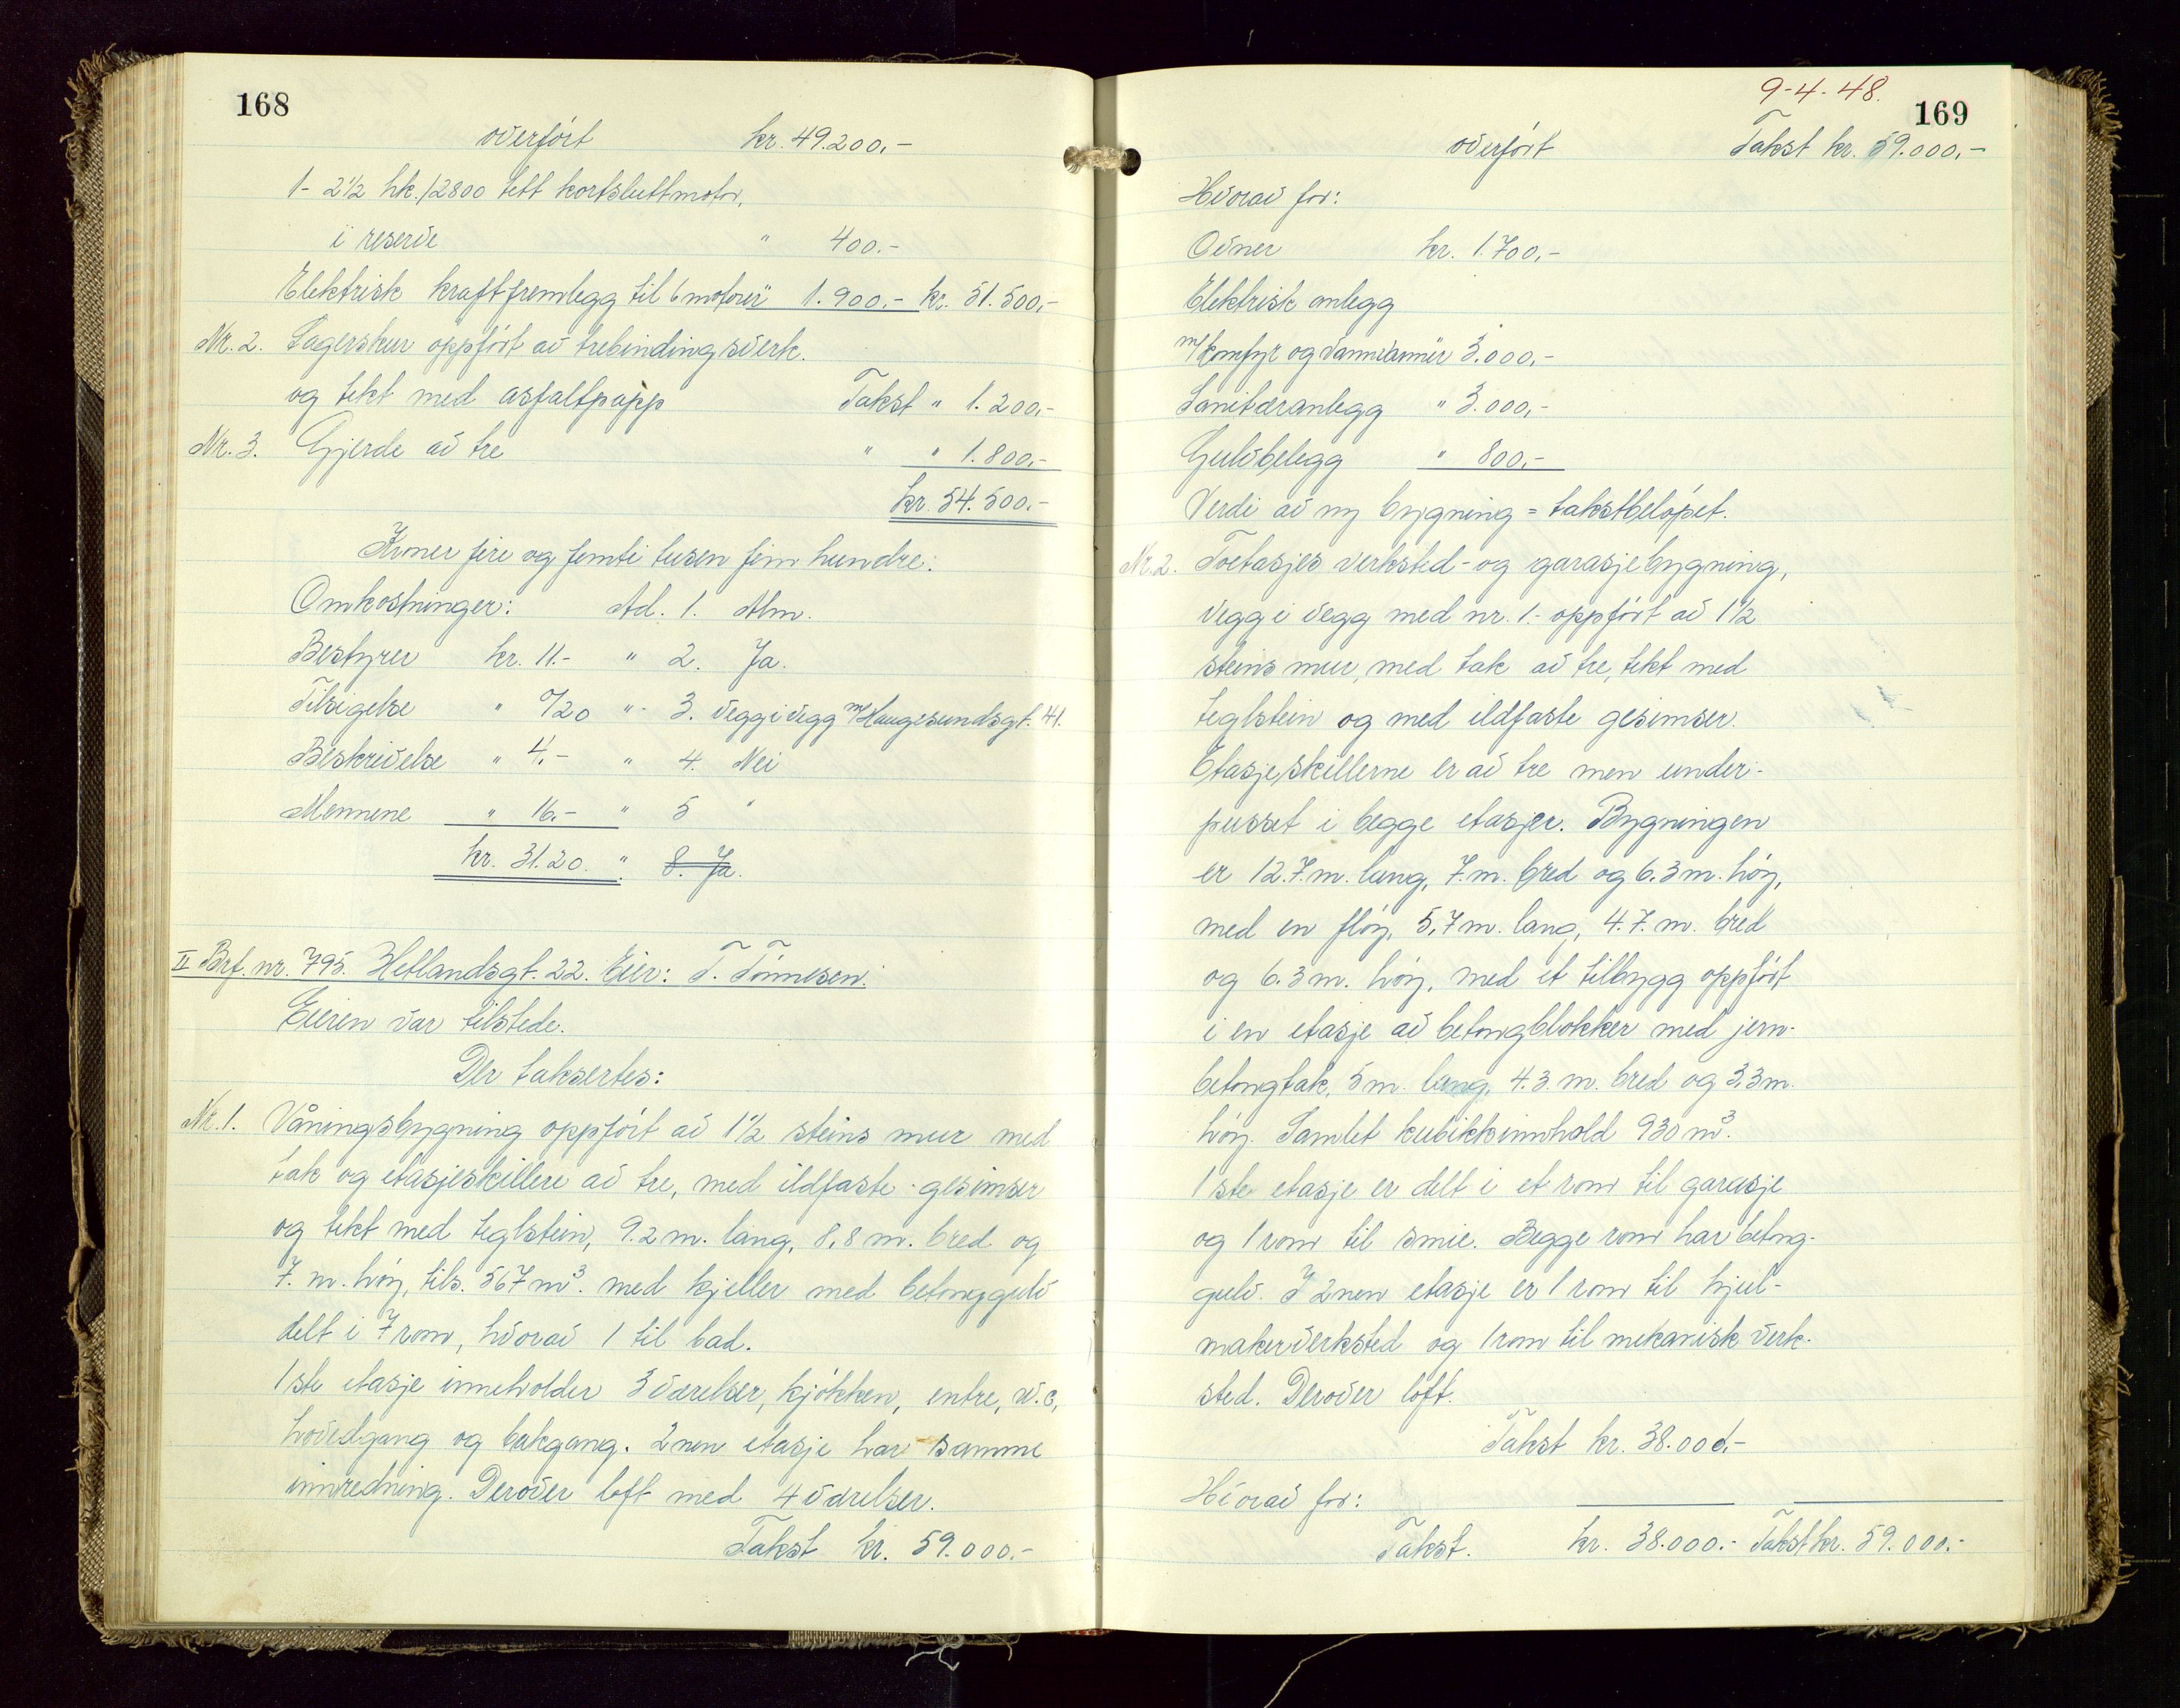 168
overført kr. 49.200,-
1- 2½ hk./2800 tett kortsluttmotor,
i reserve " 400.-
Elektrisk kraftfremlegg til 6 motorer " 1.900.- kr. 51.500,-
Nr. 2. Lagerskur oppført av trebindingsverk.
og tekt med asfaltpapp Takst " 1.200,-
Nr. 3. Gjerde av tre " " 1.800.-
kr. 54.500.-
Kroner fire og femti tusen fem hundre.
Omkostninger: Ad. 1. Alm.
Bestyrer kr. 11.- " 2. Ja.
Tilsigelse " 0/20 " 3. Vegg i vegg m/Haugesundsgt. 41.
Beskrivelse " 4.- " 4. Nei
Mennene " 16.- " 5 "
kr. 31.20. " 8. Ja.
II Brf. nr. 795. Hetlandsgt. 22. Eier: T. Tønnesen.
Eieren var tilstede.
Der taksertes:
Nr. 1. Våningsbygning oppført av 1½ steins mur med
tak og etasjeskillere av tre, med ildfaste gesimser
og tekt med teglstein, 9.2 m. lang, 8,8 m. bred og
7. m. høy, tils. 567 m³. med kjeller med betonggulv
delt i 7 rom, hvorav 1 til bad.
1ste etasje inneholder 3 værelser, kjøkken, entre, w.c,
hovedgang og bakgang. 2nen etasje har samme
innredning. Derover loft med 4 værelser.
Takst kr. 59.000.-
9-4-48.
169
overført Takst kr. 59.000,-
Hvorav for:
Ovner kr. 1.700,-
Elektrisk anlegg
m/komfyr og vannvarmer 3.000,-
Sanitæranlegg " 3.000,-
Gulvbelegg " 800,-
Verdi av ny bygning = takstbeløpet.
Nr. 2. Toetasjes verksted- og garasjebygning,
vegg i vegg med nr. 1.- oppført av 1½
steins mur, med tak av tre, tekt med
teglstein og med ildfaste gesimser.
Etasjeskillerne er av tre men under-
pusset i begge etasjer. Bygningen
er 12.7 m. lang, 7. m. bred og 6.3 m. høy,
med en fløy, 5,7 m. lang, 4.7. m. bred
og 6.3 m. høy, med et tilbygg oppført
i en etasje av betongblokker med jern-
betongtak, 5 m. lang, 4.3 m. bred og 3,3 m.
høy. Samlet kubikkinnhold 930 m³.
1ste etasje er delt i et rom til garasje
og 1 rom til smie. Begge rom har betong-
gulv. I 2nen etasje er 1 rom til hjul-
makerverksted og 1 rom til mekanisk verk-
sted. Derover loft.
Takst kr. 38.000.-
Hvorav for:
Takst. kr. 38.000.- Takst kr. 59.000.-